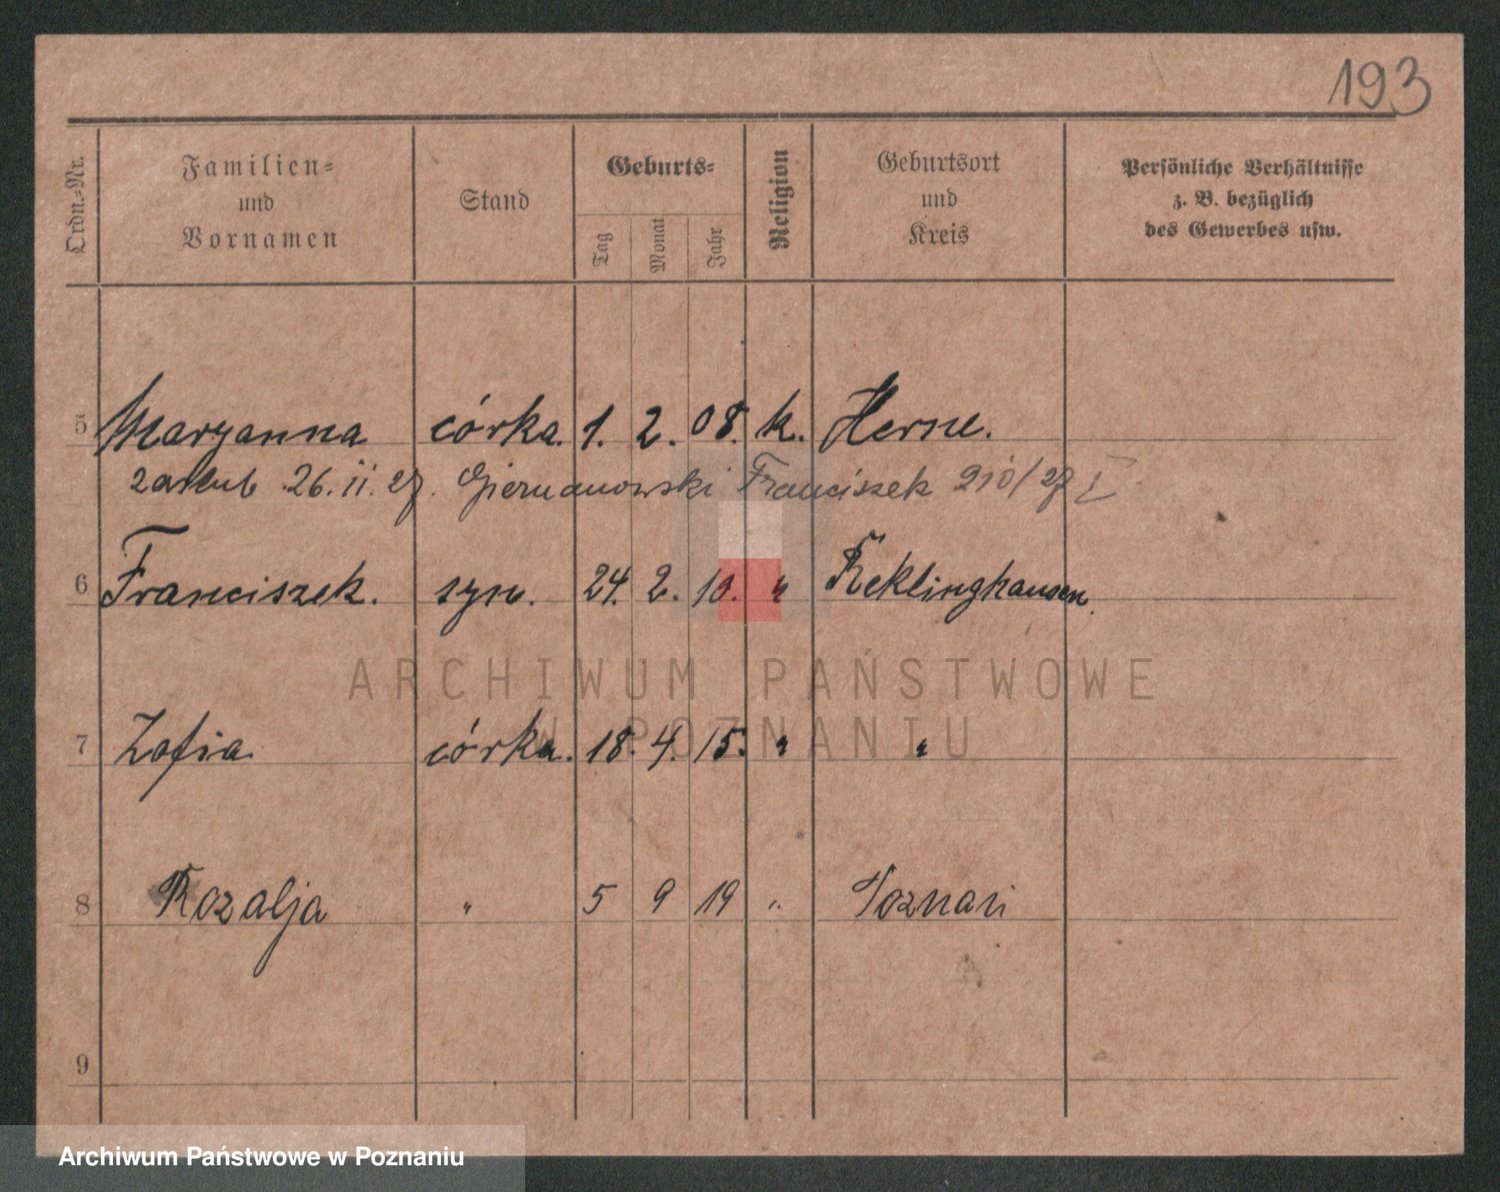 193
Ordn.-Nr. Familien- und Vornamen Stand Geburts- Tag Monat Jahr Religion Geburtsort und Kreis Persönliche Verhältnisse z. B. bezüglich des Gewerbes usw.
5 Maryanna córka. 1. 2. 08. k. Herne.
26. 11. 27. Franciszek 910/27 I
6 Franciszek. syn. 24. 2. 10. " Reklinghausen.
ARCHIWUM PAŃSTWOWE
W POZNANIU
7 Zofia córka. 18. 4. 15. " "
8 Rozalja " 5 9 19 " Poznań
9
Archiwum Państwowe w Poznaniu